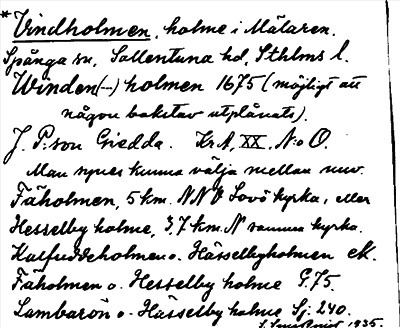 * Vindholmen, holme i Mälaren.
Spånga sn, Sollentuna hd, Sthlms l.
Winden(--) holmen 1675 (möjligt att
någon bokstav utplånats).
J. P:son Giedda. KrA, XX, N:o O.
Man synes kunna välja mellan nuv.
Fäholmen, 5 km. NNV Lovö kyrka, eller
Hesselby holme, 3,7 km. N samma kyrka.
Kalfuddeholmen o. Hässelbyholmen eK.
Fäholmen o. Hesselby holme G.75.
Lambarön o. Hässelby holme Sj. 240.
1935.